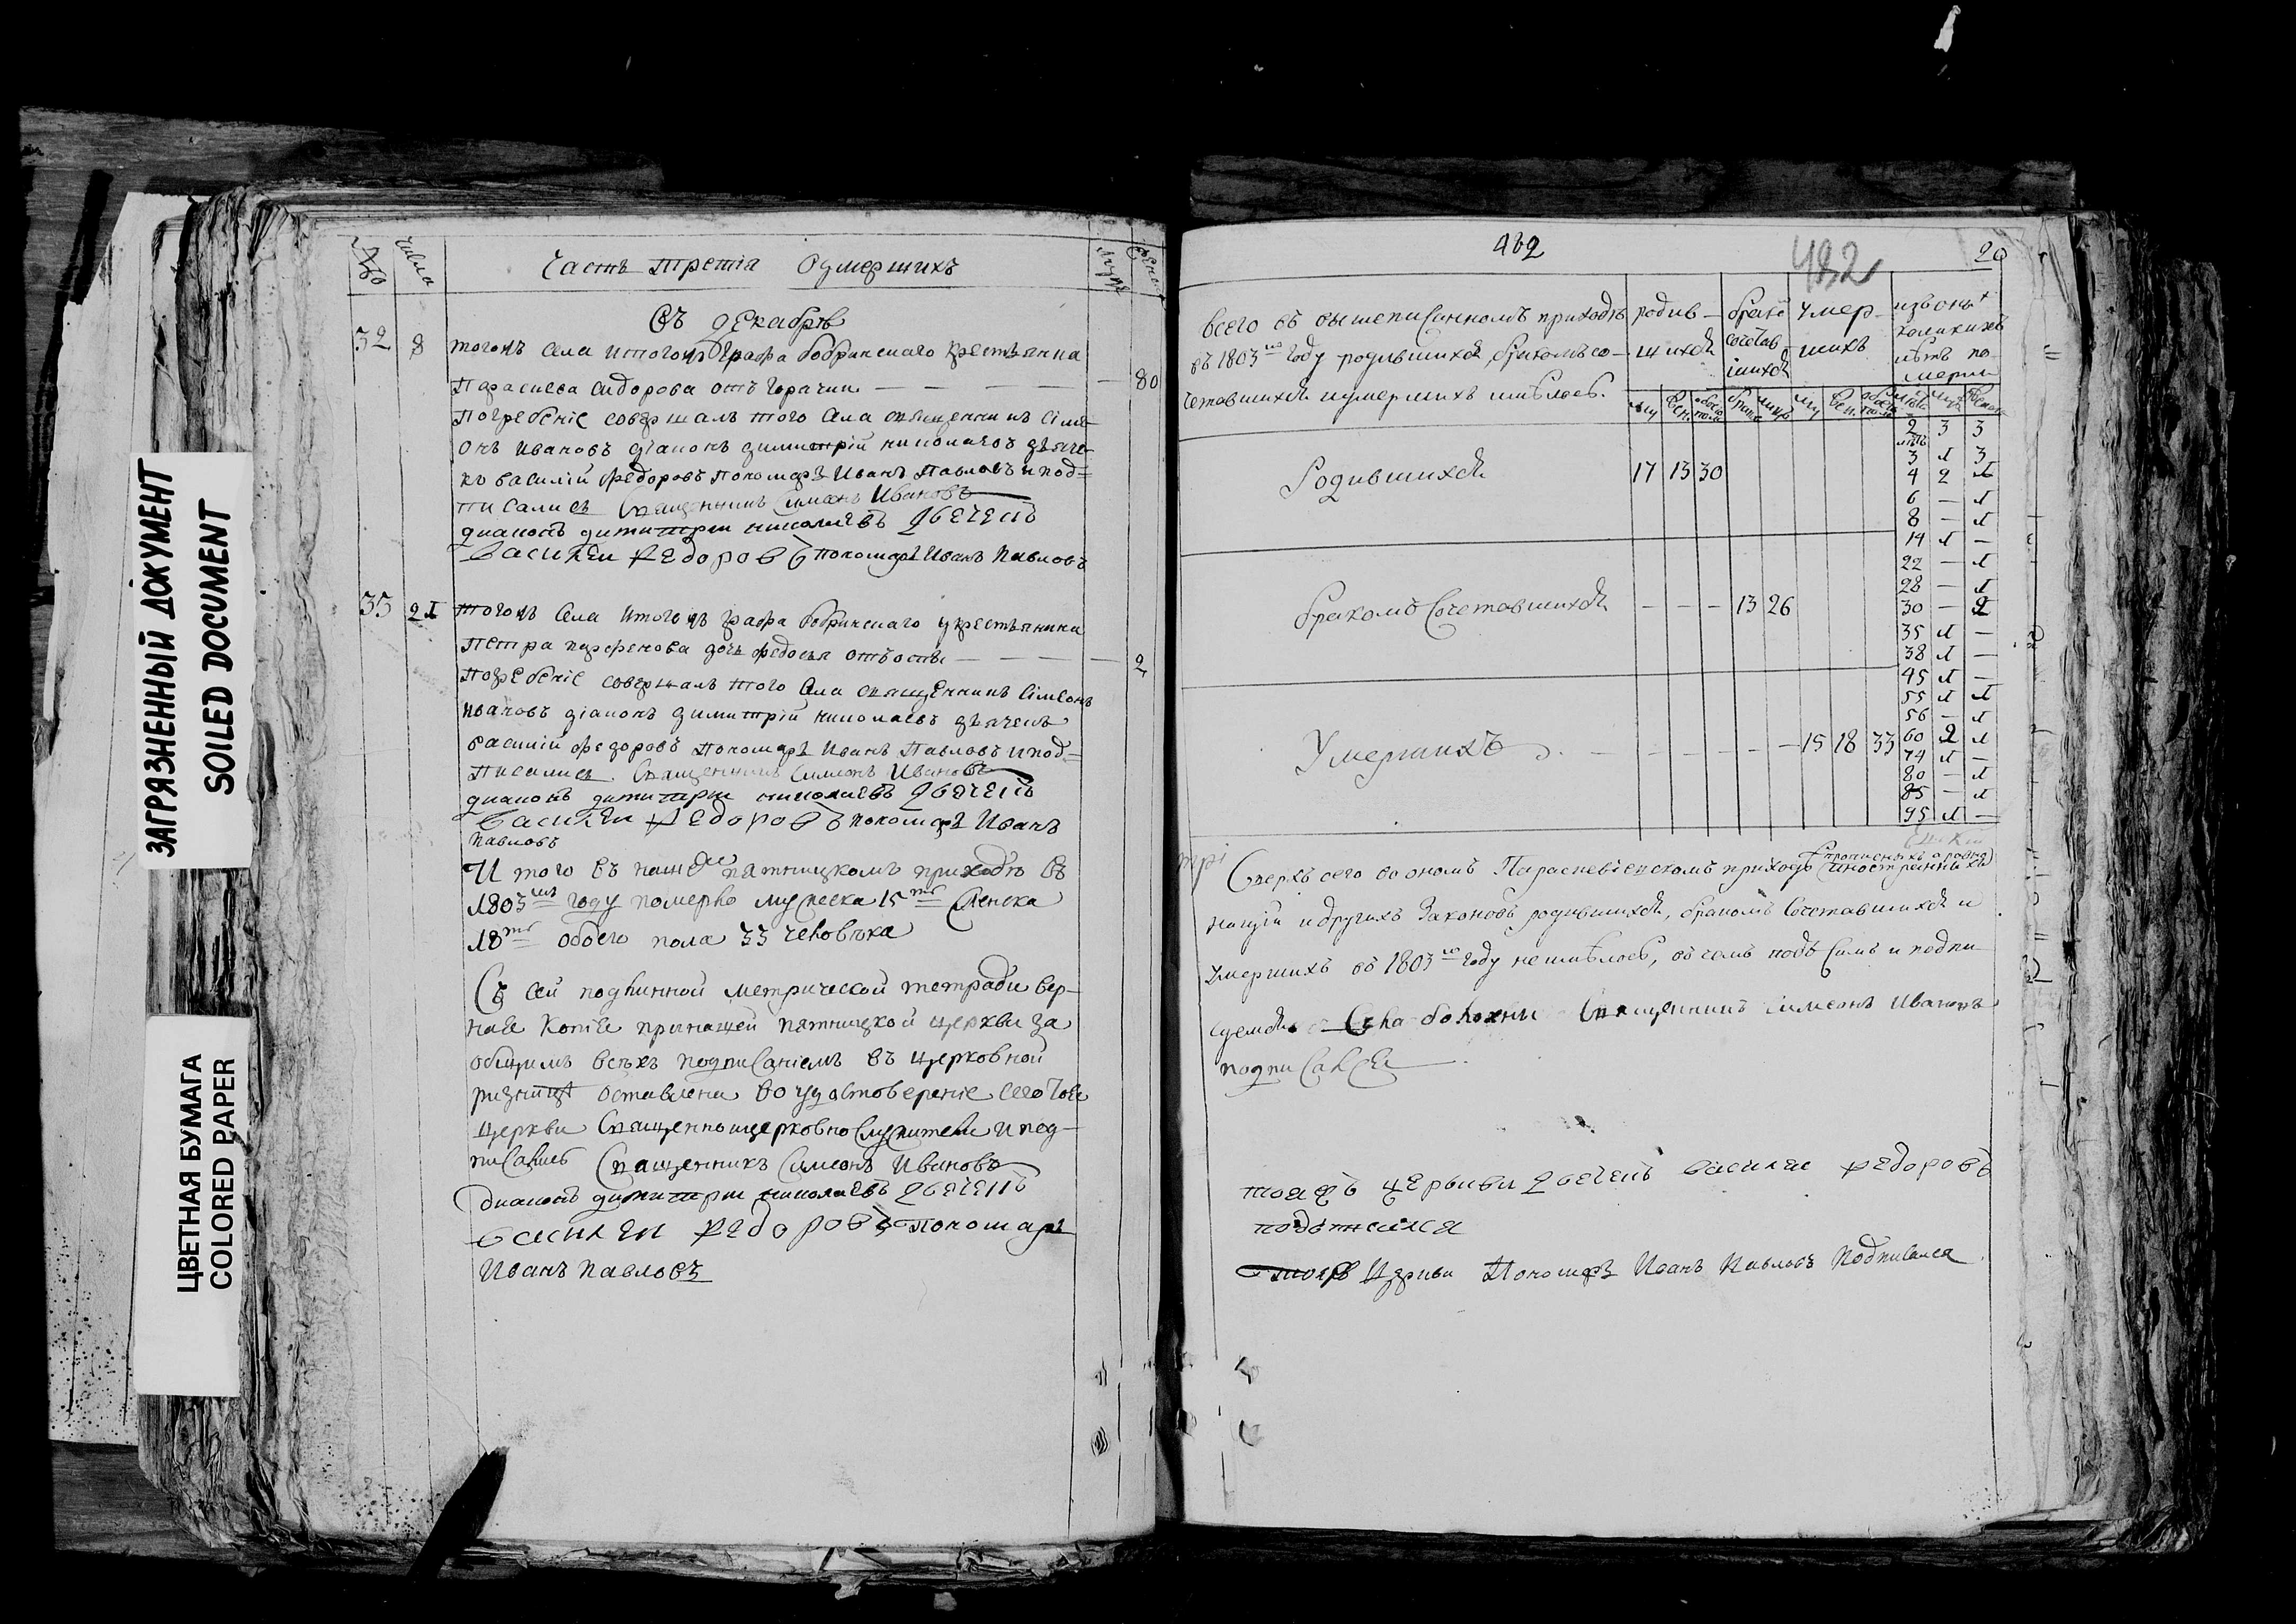 ЗАГРЯЗНЕННЫЙ ДОКУМЕНТ
SOILED DOCUMENT
ЦВЕТНАЯ БУМАГА
COLORED PAPER
числа
Часть третіа Оумершихъ
Въ декабрѣ
32 8 тогожъ села итогожъ Графа бобринскаго крестьянка
Парасковa Сидорова отъ Горячки — — — — 80
Погребеніе совершалъ того села священникъ Сіме-
онъ Ивановъ діаконъ димитрій николаевъ дьяче-
къ василій федоровъ Пономарь Иванъ Павловъ и под=
писались Священникъ Симеонъ Ивановъ
диаконъ димитрии николаевъ двечекъ
василеи федоровъ пономарь Иванъ Павловъ
33 21 тогожъ села итогожъ графа бобринскаго у крестьянина
Петра парфенова дочь федосья отъ оспы — — — — 2
Погребеніе совершалъ того села священникъ Сімеонъ
ивановъ діаконъ димитрій николаевъ дьячекъ
василій федоровъ Пономарь Иванъ Павловъ и под=
писались. Священникъ Симеонъ Ивановъ
диаконъ димитрии николаевъ двечекъ
василеи федоровъ пономарь Иванъ
Павловъ
И того въ нашей пятницкомъ приходѣ въ
1803 году померло мужеска 15 женска
18 обоего пола 33 человѣка
Съ сей подлинной метрической тетради вер-
ная Копія при нашей пятницкой церкви за
общимъ всѣхъ подписаніемъ въ церковной
ризницѣ оставлена во удостовереніе сего тоя
церкви Священноцерковнослужители и под-
писались Священникъ Симеонъ Ивановъ
Диаконъ димитрии николаевъ двечекъ
василеи федоровъ Пономарь
Иванъ Павловъ
482
482
20
Всего въ вышеписанномъ приходѣ
въ 1803 году родившихся, бракомъ со-
четавшихся и умершихъ имѣлось.
родив-
шихся
брако
сочетав
шихся
умер-
шихъ
изъ онъ
коликихъ
лѣтъ по-
мерли
Родившихся 17 13 30
Бракомъ Сочетавшихся — — — 13 26
Умершихъ — — — — — 15 18 33
2 3 3
3 1 3
4 2 1
6 — 1
8 — 1
14 1 —
22 — 1
28 — 1
30 — 2
35 1 —
38 1 —
45 1 —
55 1 1
56 — 1
60 2 1
74 1 —
80 — 1
85 — 1
95 1 —
Сверхъ сего во ономъ Параскевіевскомъ приходѣ иностранныхъ
націй и другихъ Законовъ родившихся, бракомъ Сочетавшихся и
умершихъ въ 1803 году не имѣлось, въ чемъ подъ Симъ и подпи-
суемся Села боложны Священникъ Симеонъ Ивановъ
подписалсе
тояжъ церькви двечекъ василеи федоровъ
подьписался
тояжъ Церкви Пономарь Иванъ Павловъ Подписался